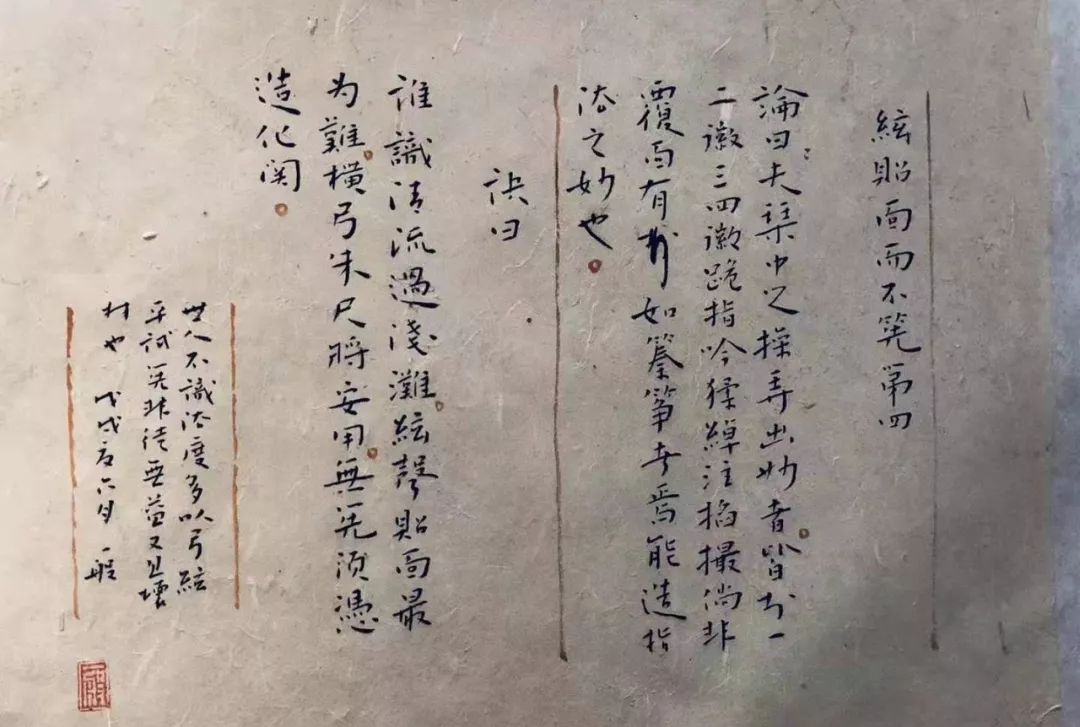 絃貼面而不筅第四
論曰夫琹中之操弄出妙者皆於一
二徽三四徽跪指吟猱綽注掐撮倘非
覆面有於如搊箏者焉能造指
法之妙也
訣曰
誰識清流過淺灘絃聲貼面最
为難橫弓朱尺將安用無筅須憑
造化関
世人不識法度多以弓絃
平試筅非徒無益又且壞
材也 戊戌夏六月 一般